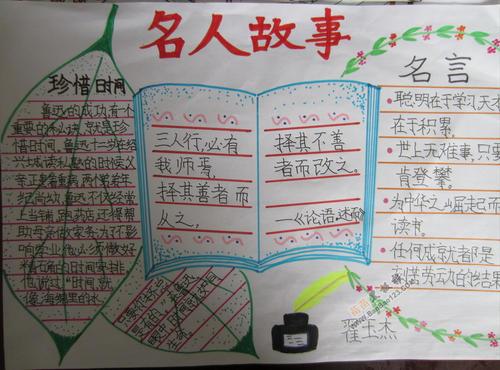 名人故事
珍惜时间
鲁迅的成功,有个
重要的秘诀,就是珍
惜时间,鲁迅十二岁在绍
兴城读私塾的时候,父
亲正患着重病,两个弟弟年
纪尚幼,鲁迅不仅经常
上当铺,跑药店,还得帮
助母亲做家务,为了不影
响学业,他必须做好
精确的时间安排
时间,就
像海绵里的水
三人行,必有
我师焉,
择其善者而
从之,
择其不善
者而改之。
—《论语·述而》
名言
聪明在于学习,天才
在于积累。
世上无难事,只要
肯登攀。
为中华之崛起而
读书。
任何成就都是
刻苦劳动的结果
翟玉杰